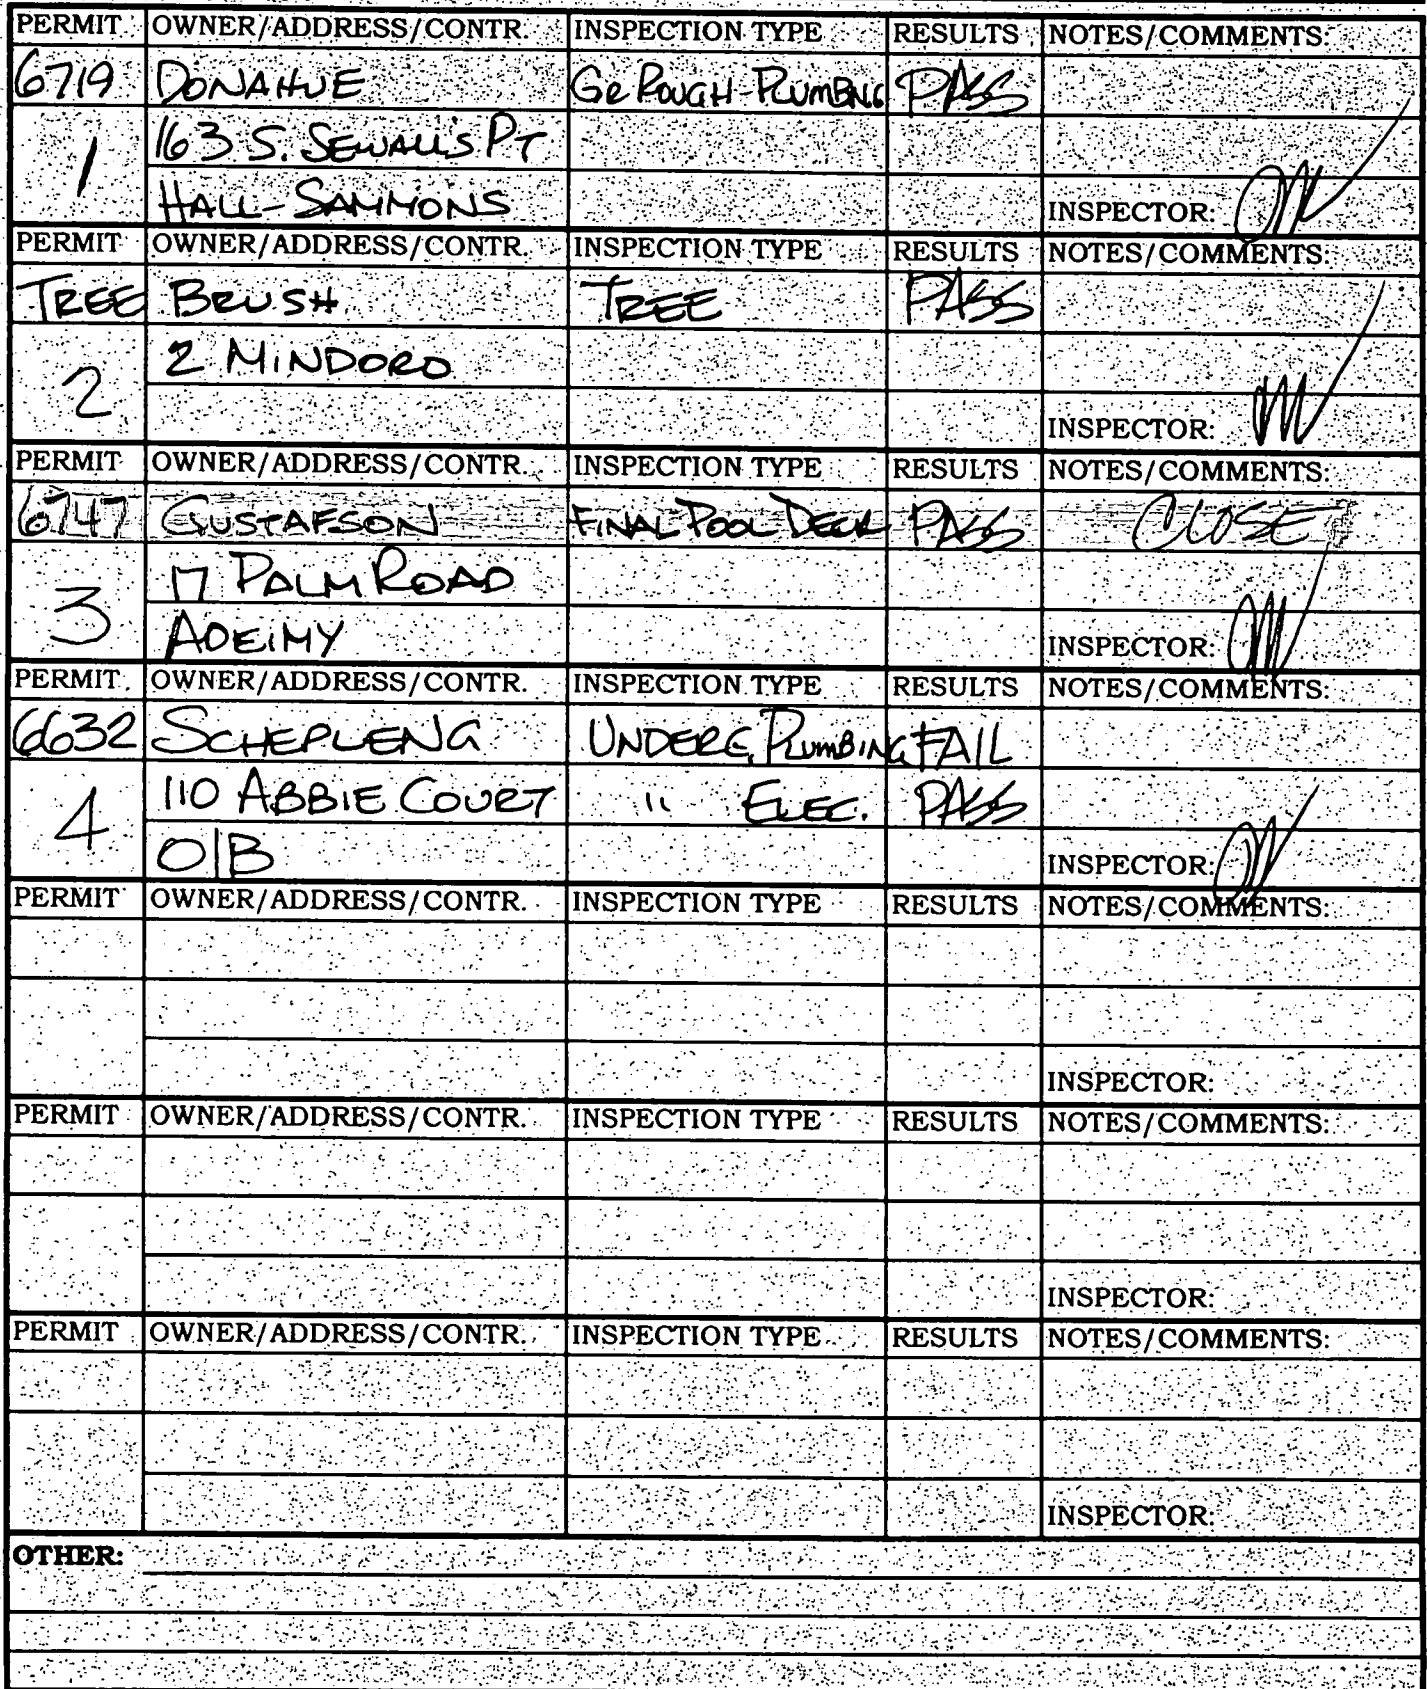 PERMIT OWNER/ADDRESS/CONTR. INSPECTION TYPE RESULTS NOTES/COMMENTS:
6719 DONAHUE GR ROUGH-PLUMBNG PASS
1 163 S. SEWALL'S PT
HALL-SAMMONS INSPECTOR:
PERMIT OWNER/ADDRESS/CONTR. INSPECTION TYPE RESULTS NOTES/COMMENTS:
TREE BRUSH TREE PASS
2 2 MINDORO
INSPECTOR:
PERMIT OWNER/ADDRESS/CONTR. INSPECTION TYPE RESULTS NOTES/COMMENTS:
6747 GUSTAFSON FINAL POOL DECK PASS CLOSE
3 17 PALM ROAD
ADEIMY INSPECTOR:
PERMIT OWNER/ADDRESS/CONTR. INSPECTION TYPE RESULTS NOTES/COMMENTS:
6632 SCHEPLENG UNDERG. PLUMBING FAIL
4 110 ABBIE COURT " ELEC. PASS
O/B INSPECTOR:
PERMIT OWNER/ADDRESS/CONTR. INSPECTION TYPE RESULTS NOTES/COMMENTS:
INSPECTOR:
PERMIT OWNER/ADDRESS/CONTR. INSPECTION TYPE RESULTS NOTES/COMMENTS:
INSPECTOR:
PERMIT OWNER/ADDRESS/CONTR. INSPECTION TYPE RESULTS NOTES/COMMENTS:
INSPECTOR:
OTHER: